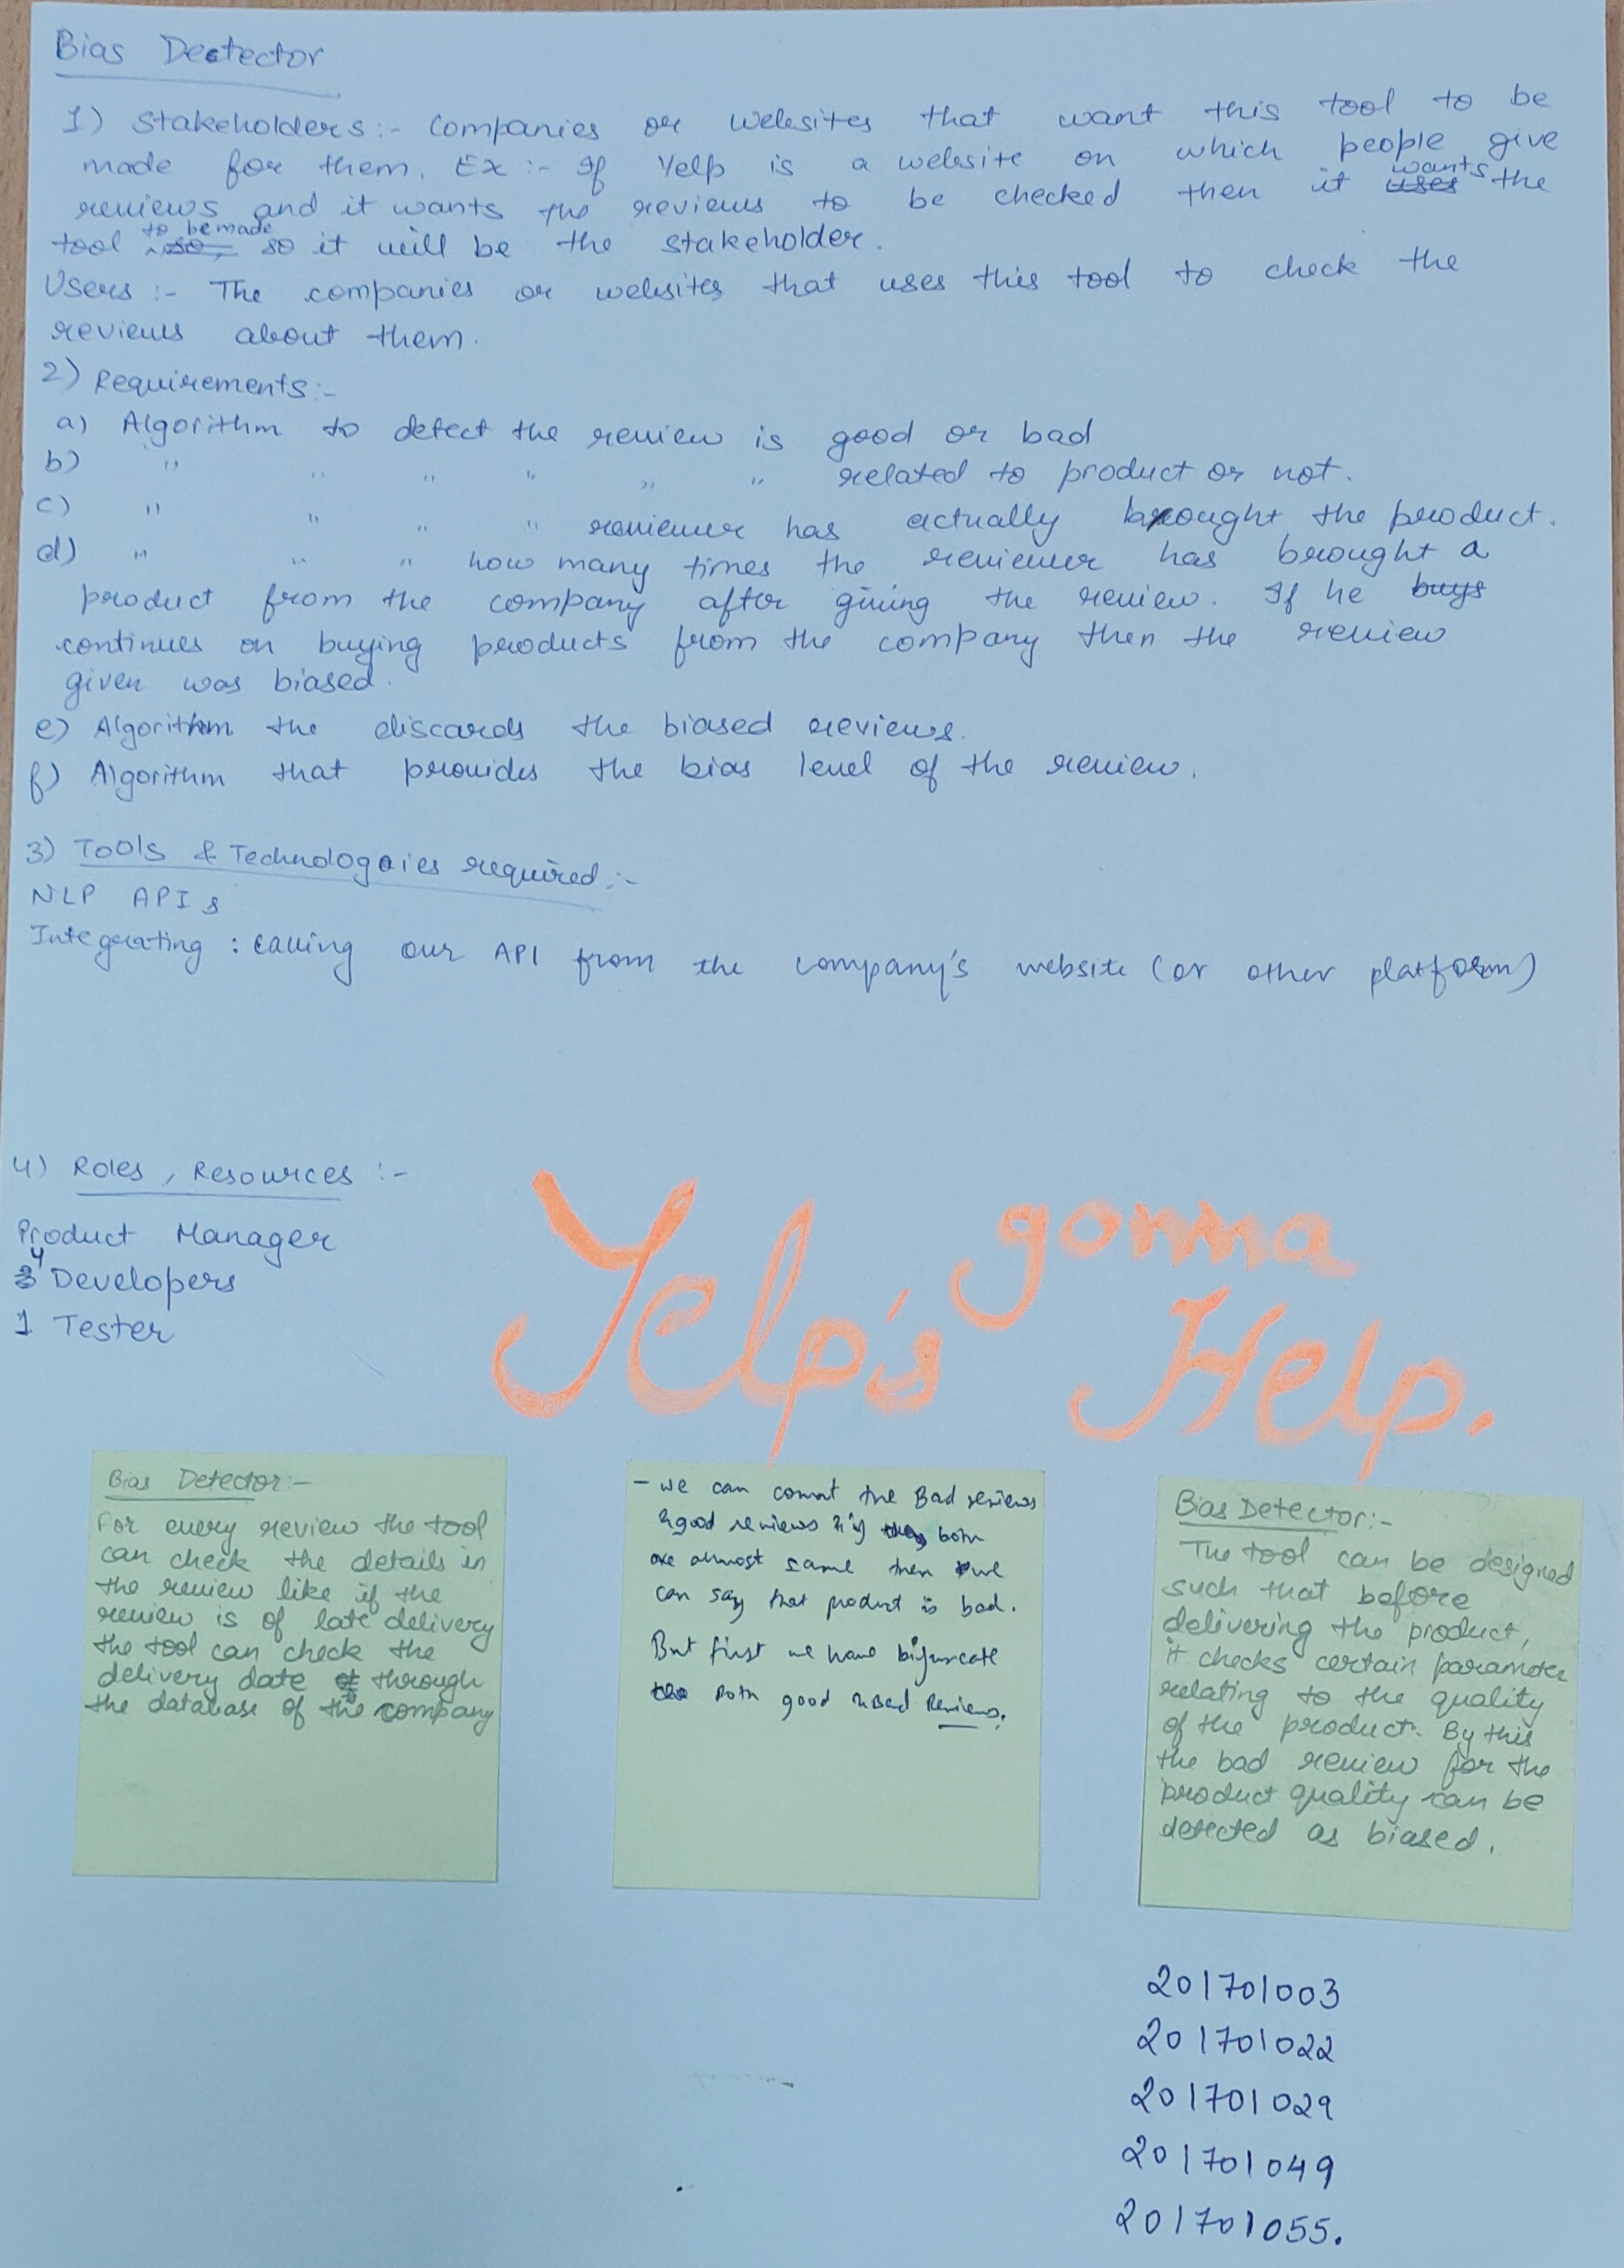 Bias Detector
1) Stakeholders:- Companies or websites that want this tool to be
made for them. Ex :- If Yelp is a website on which people give
reviews and it wants the reviews to be checked then it wants the
tool to be made so it will be the stakeholder.
Users :- The companies or websites that uses this tool to check the
reviews about them.
2) Requirements:-
a) Algorithm to detect the review is good or bad
b) " " " " " " related to product or not.
c) " " " " reviewer has actually brought the product.
d) " " " how many times the reviewer has brought a
product from the company after giving the review. If he buys
continues on buying products from the company then the review
given was biased.
e) Algorithm the discards the biased reviews.
f) Algorithm that provides the bias level of the review.
3) Tools & Technologies required:-
NLP APIs
Integrating : calling our API from the company's website (or other platform)
4) Roles, Resources :-
Product Manager
4 Developers
1 Tester
Yelp's gonna Help.
Bias Detector:-
For every review the tool
can check the details in
the review like if the
review is of late delivery
the tool can check the
delivery date through
the database of the company
- we can count the Bad reviews
& good reviews & if both
are almost same then we
can say that product is bad.
But first we have bifurcate
both good & Bad Reviews.
Bias Detector:-
The tool can be designed
such that before
delivering the product,
it checks certain parameter
relating to the quality
of the product. By this
the bad review for the
product quality can be
detected as biased.
201701003
201701022
201701029
201701049
201701055.